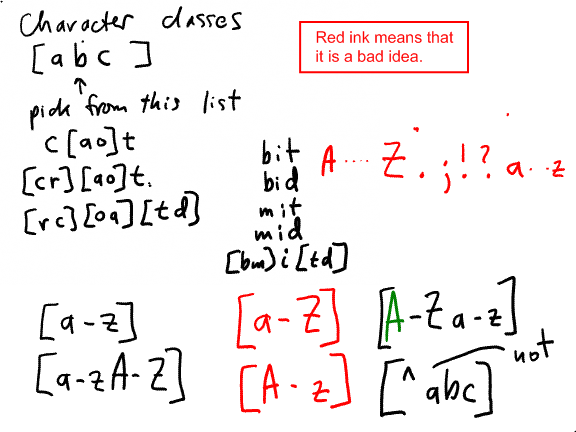 Character classes
[abc ]
↑
pick from this list
c[ao]t
[cr][ao]t.
[rc][oa][td]
Red ink means that
it is a bad idea.
bit
bid
mit
mid
[bm)i[td]
A .... Z . ; ! ? a ... z
[a-z]
[a-zA-Z]
[a-Z]
[A-z]
[A-Za-z]
[^abc]
not